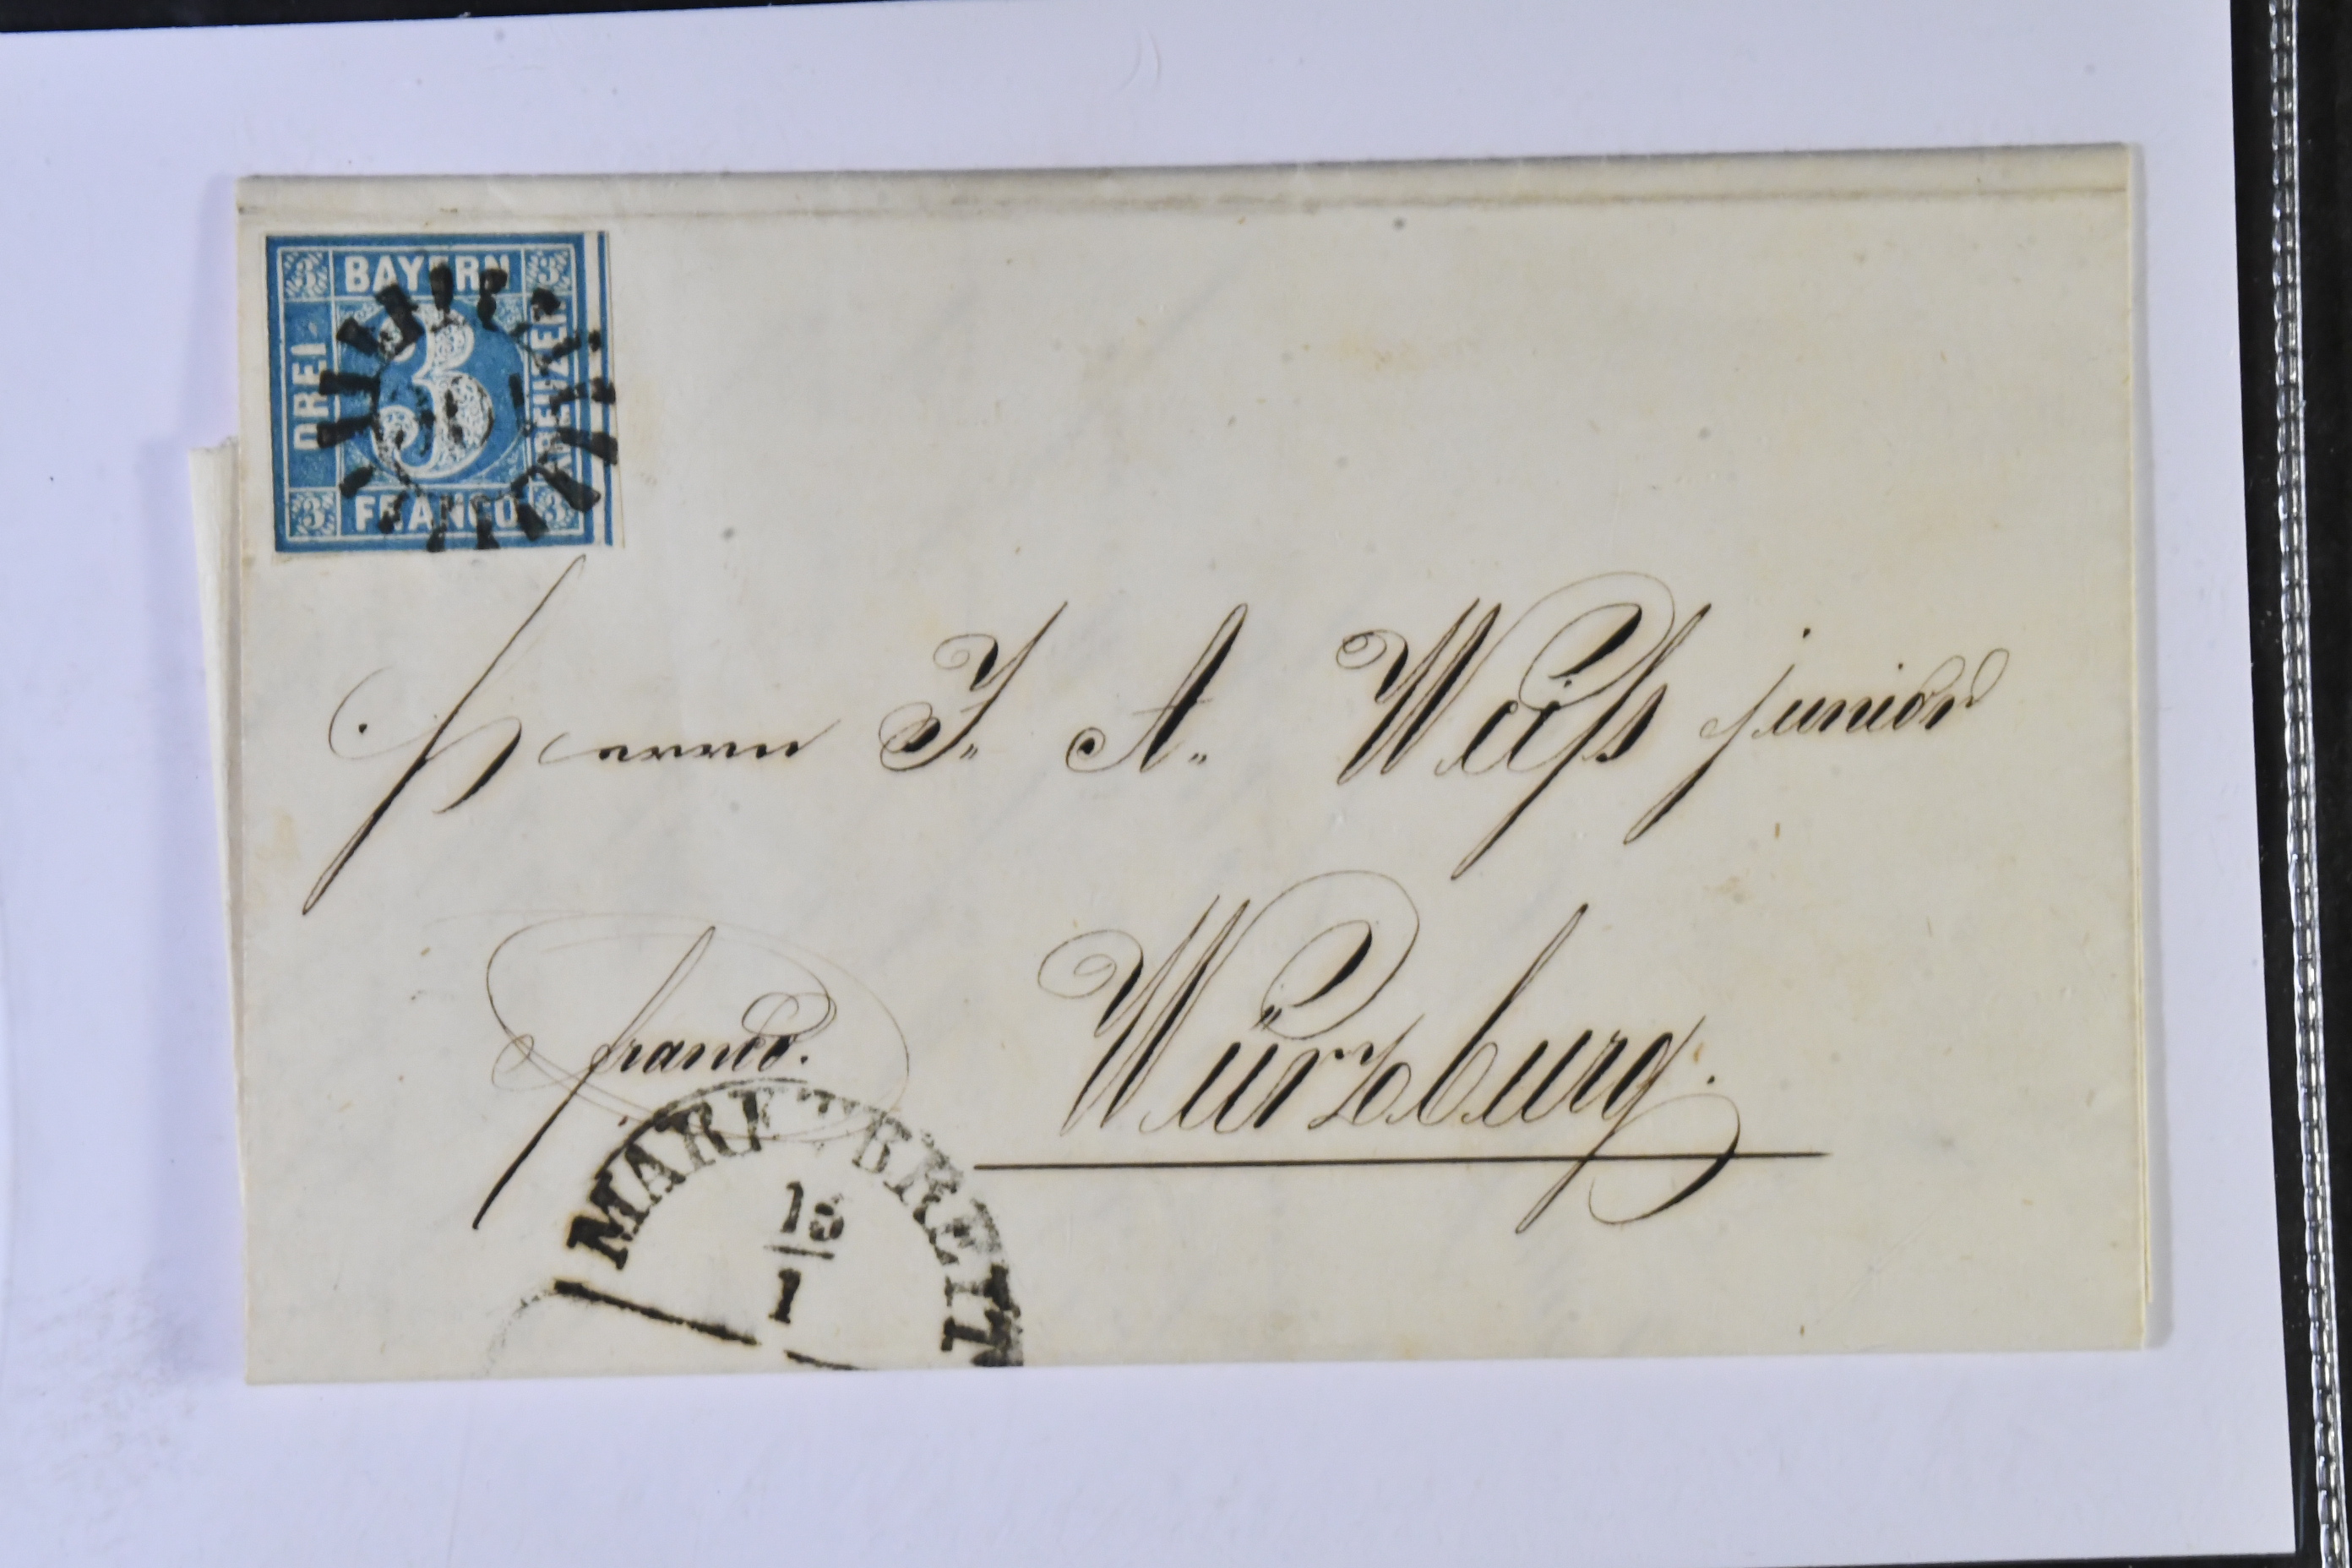 BAYERN
DREI
3
KREUZER
FRANCO
3 3 3
Herrn J. A. Weiß junior
franco. Würzburg.
MARKTBREIT
18
1